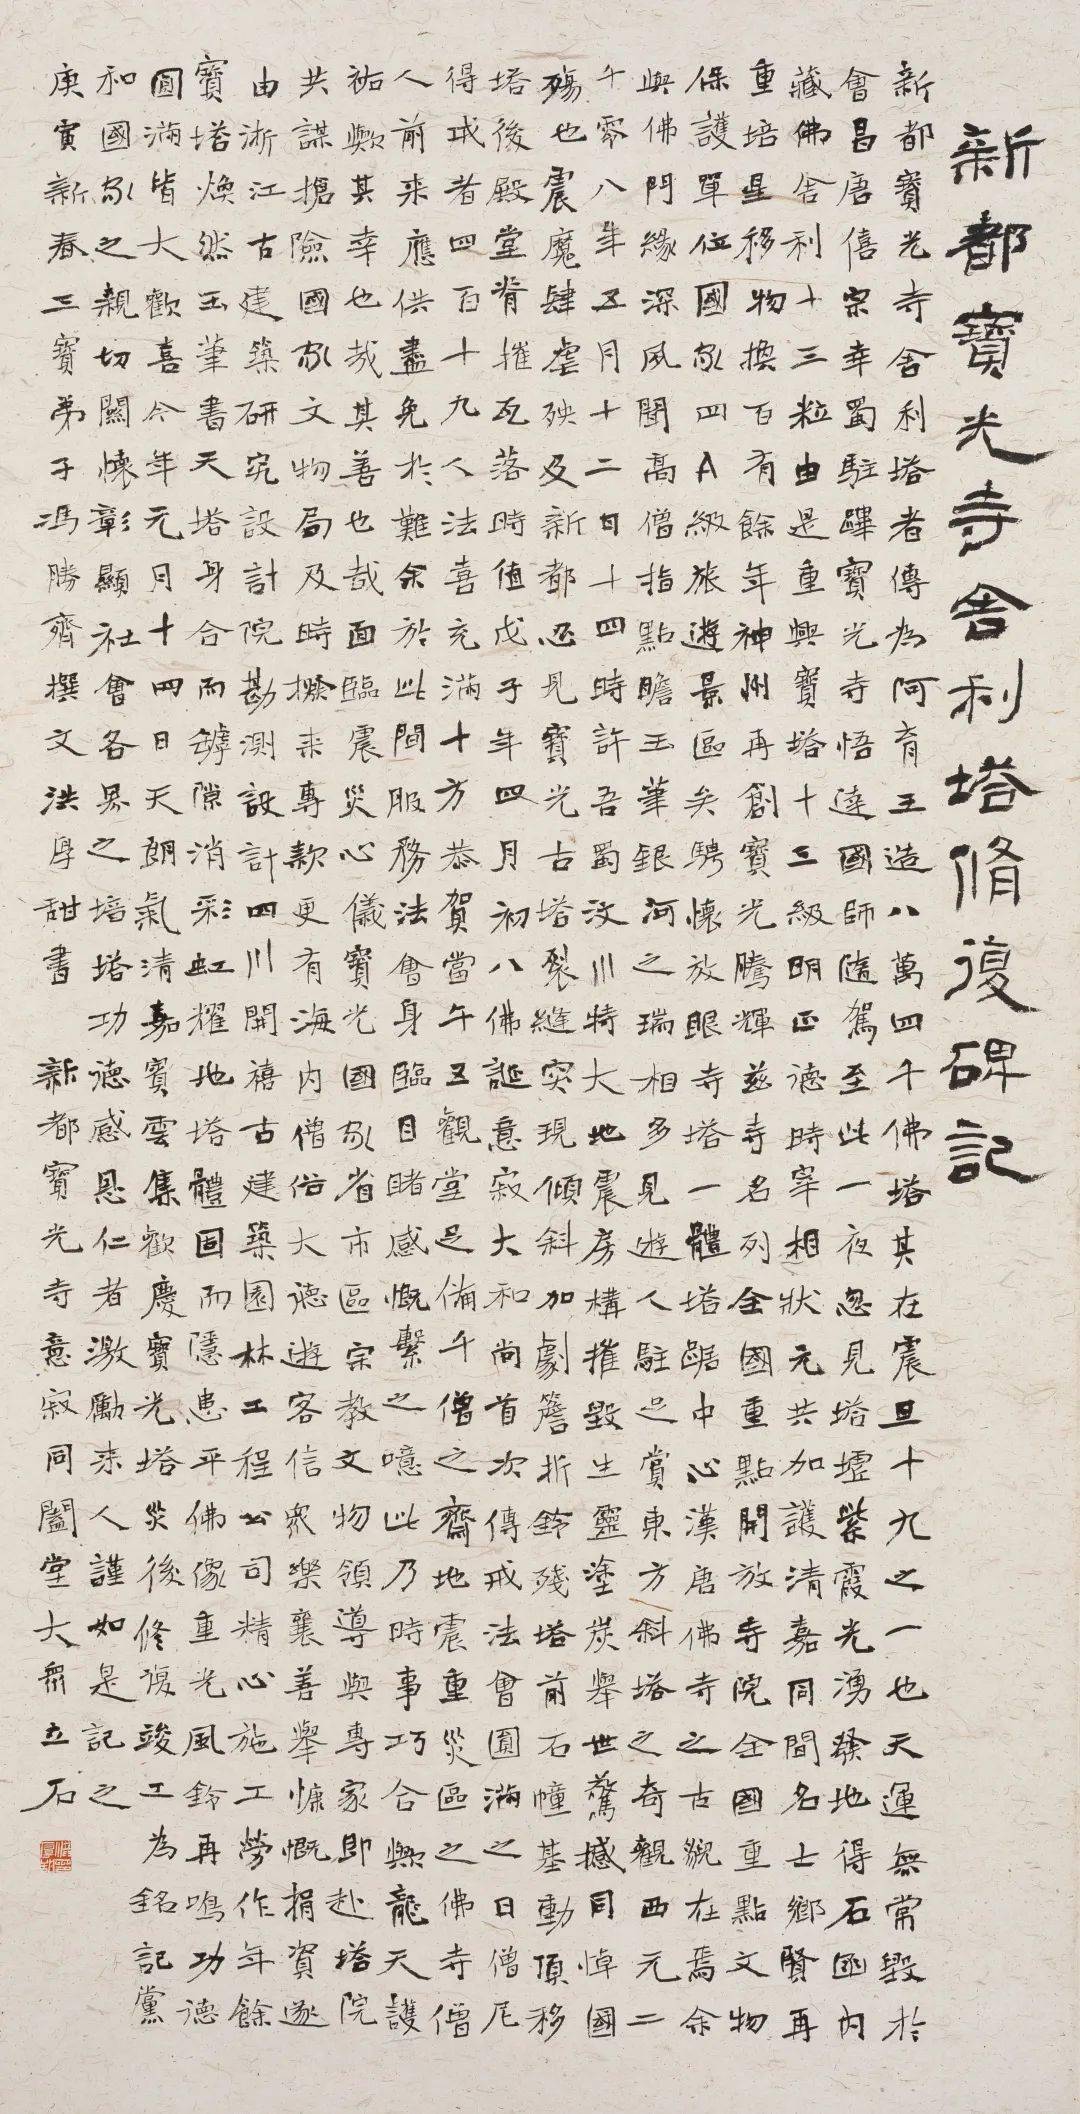 新都寶光寺舍利塔脩復碑記
新都寶光寺舍利塔者傳為阿育王造八萬四千佛塔其在震旦十九之一也天運無常毀於
會昌唐僖宗幸蜀駐蹕寶光寺悟達國師隨駕至此一夜忽見塔墟紫霞光湧發地得石函內
藏佛舍利十三粒由是重興寶塔十三級明正德時宰相狀元共加護清嘉同間名士鄉賢再
重培星移物換百有餘年神州再創寶光騰輝茲寺名列全國重點開放寺院全國重點文物
保護單位國家四A級旅遊景區矣騁懷放眼寺塔一體塔踞中心漢唐佛寺之古貌在焉余
與佛門緣深夙聞高僧指點瞻玉筆銀河之瑞相多見遊人駐足賞東方斜塔之奇觀西元二
千零八年五月十二日十四時許吾蜀汶川特大地震房構摧毀生靈塗炭舉世驚撼同悼國
殤也震魔肆虐殃及新都忍見寶光古塔裂縫突現傾斜加劇簷折鈴殘塔前石幢基動頂移
塔後殿堂脊摧瓦落時值戊子年四月初八佛誕意寂大和尚首次傳戒法會圓滿之日僧尼
得戒者四百十九人法喜充滿十方恭賀當午五觀堂足備千僧之齋地震重災區之佛寺僧
人前來應供盡免於難余於此間服務法會身臨目睹感慨繫之噫此乃時事巧合歟龍天護
祐歟其幸也哉其善也哉面臨震災心儀寶光國家省市區宗教文物領導與專家即赴塔院
共謀搶險國家文物局及時撥來專款更有海內僧俗大德遊客信眾樂襄善舉慷慨捐資遂
由浙江古建築研究設計院勘測設計四川開禧古建築園林工程公司精心施工勞作年餘
寶塔煥然玉筆書天塔身合而罅隙消彩虹耀地塔體固而隱患平佛像重光風鈴再鳴功德
圓滿皆大歡喜今年元月十四日天朗氣清嘉賓雲集歡慶寶光塔災後修復竣工為銘記黨
和國家之親切關懷彰顯社會各界之培塔功德感恩仁者激勵來人謹如是記之
庚寅新春三寶弟子馮勝齊撰文洪厚甜書 新都寶光寺意寂同闔堂大眾立石